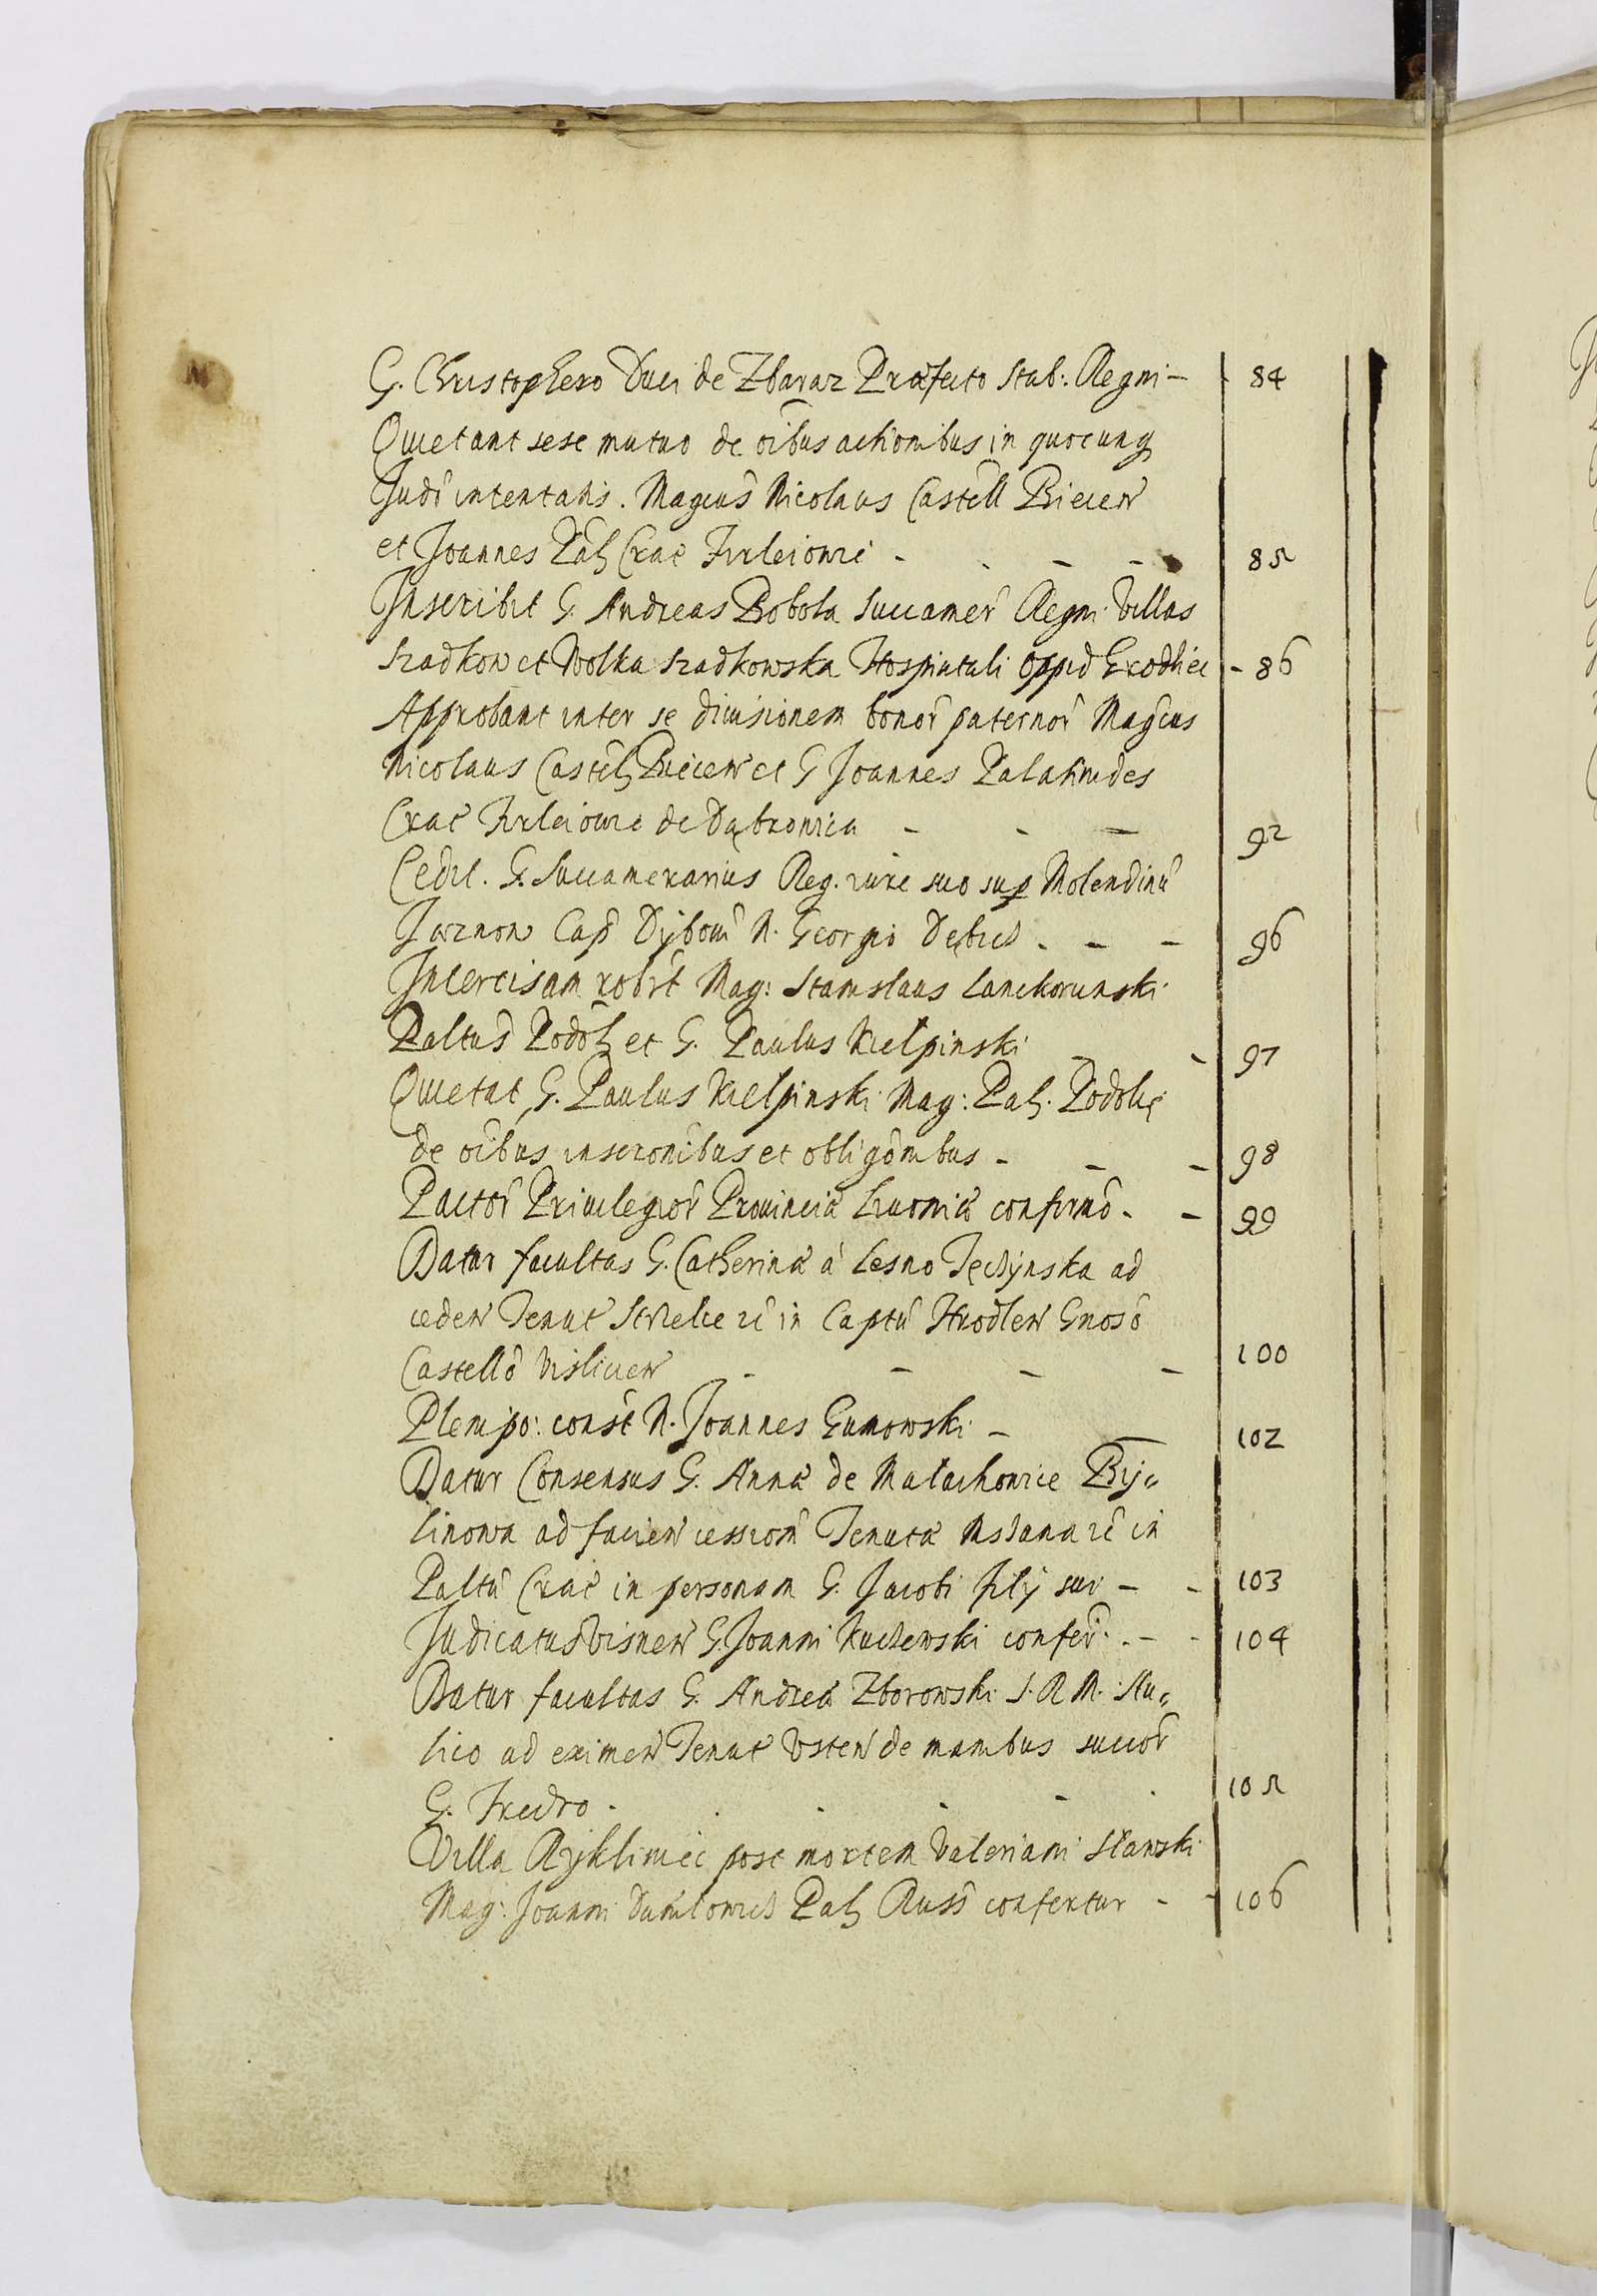 G. Christophero Duci de Zbaraz Præfecto Stab: Regni - 84
Quietant sese mutuo de oibus actionibus in quocunq
Judi intentatis. Magcus Nicolaus Castell Biecen
et Joannes Pal Crac Firleiowie - - - - 85
Inscribit G. Andreas Bobola Succamer Regni Villas
Szadkow et Wolka Szadkowska Hospitali Oppid Grodziec - 86
Approbant inter se diuisionem bonor paternor Magcus
Nicolaus Castel Biecen et G Joannes Palatinides
Crac Firleiowie de Dąbrowica - - - 92
Cedit. G. Succamerarius Reg. iure suo sup Molendinu
Cap Dybow N. Georgio - - - 96
Intercisam robrt Mag: Stanislaus Lanckorunski
Paltus Podol et G. Paulus Kielpinski - - 97
Quietat G. Paulus Kielpinski Mag: Pal. Podolię
de oibus inscronibus et obligombus - - - 98
Pactor Priuilegior Prouinciæ Liuoniæ confirmo - - 99
Datur facultas G. Catherinæ à Lesno Tęczynska ad
ceden Tenut Strzelce rc in Captu Hrodlen Gnoso
Castello Vislicien - - - - 100
Plenipo: const N. Joannes Gumowski - 102
Datur Consensus G. Annæ de Malachowice By=
linowa ad facien cession Tenutæ Mszana rc in
Paltu Crac in personam G. Jacobi filij sui - - 103
Judicatus Visnen G. Joanni Kuczewski confer. - - 104
Datur facultas G. Andreæ Zborowski S. R M. Au=
lico ad eximen Tenut Usten de manibus succor
G. Fredro - - - - - - 105
Villa Rykliniec post mortem Valeriani Slawski
Mag: Joanni Danilowicz Pal Russ confertur - - 106